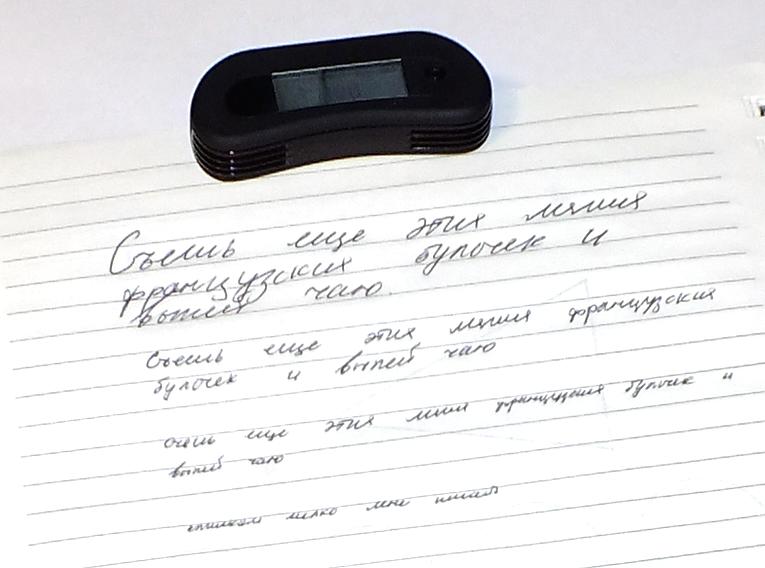 Съешь еще этих мягких
французских булочек и
выпей чаю.
Съешь еще этих мягких французских
булочек и выпей чаю
Съешь еще этих мягких французских булочек и
выпей чаю
слишком мелко мне писать